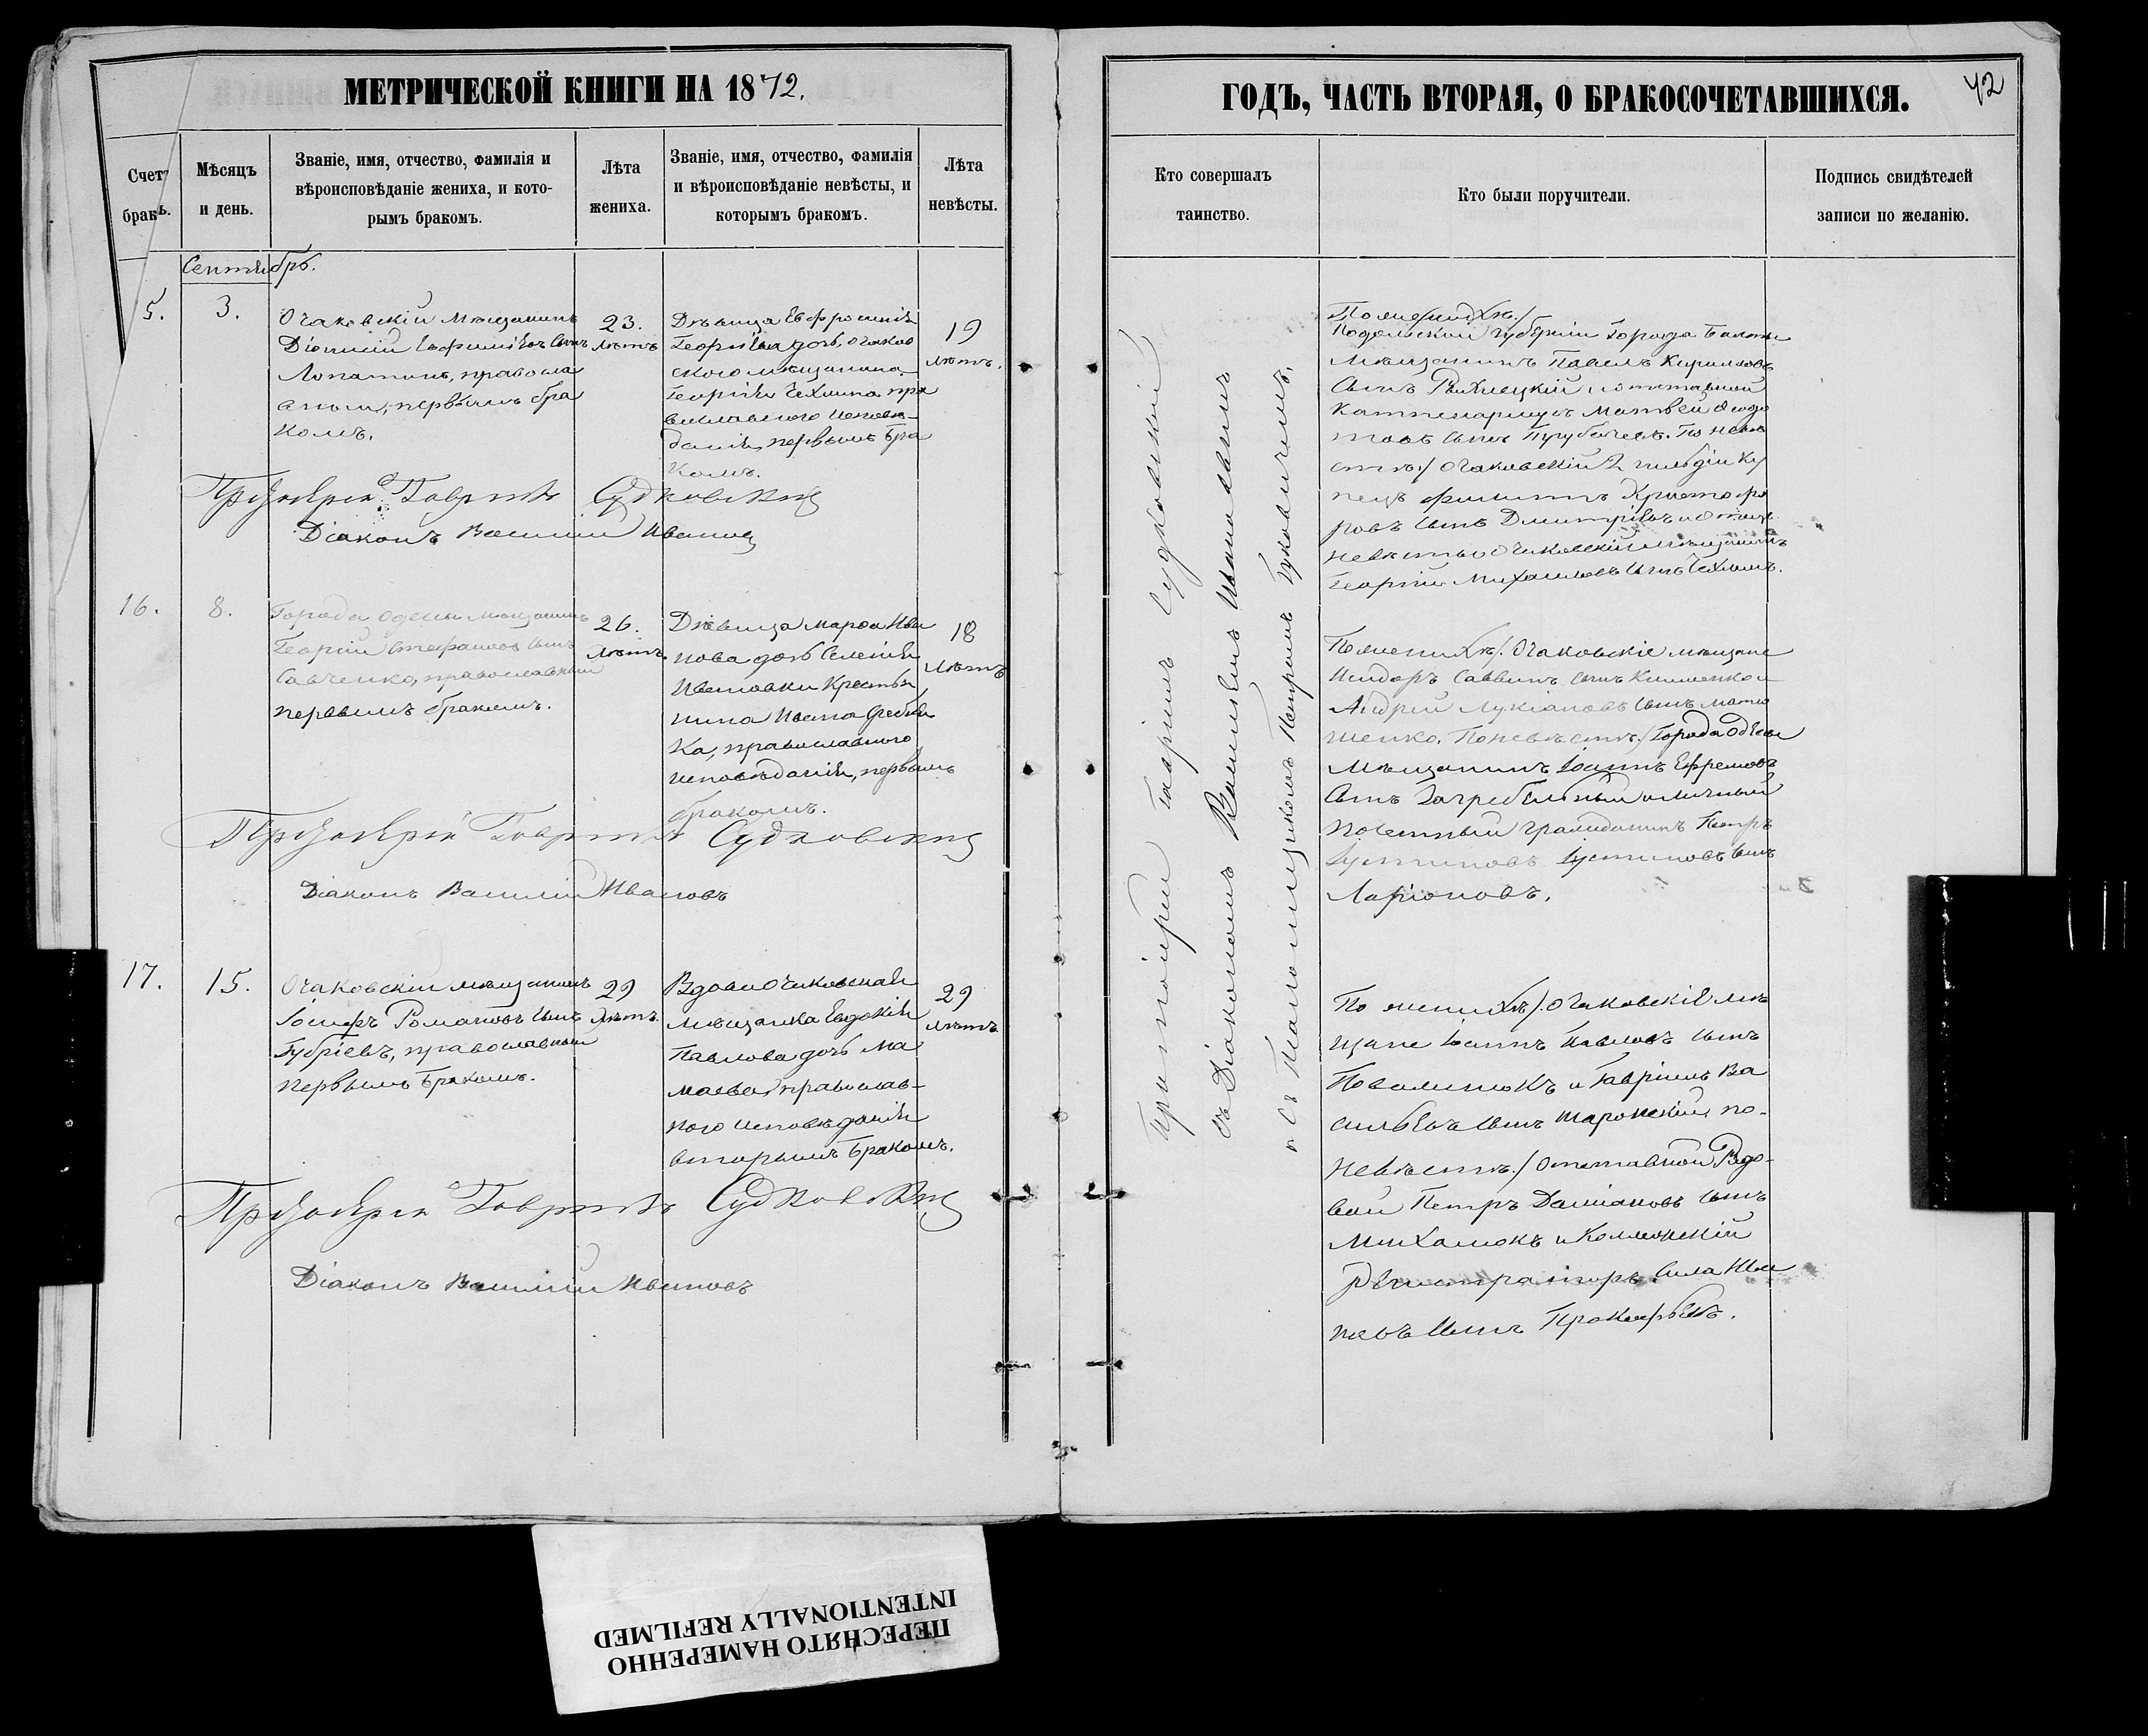 МЕТРИЧЕСКОЙ КНИГИ НА 1872.
Счетъ браковъ.
Мѣсяцъ и день.
Званіе, имя, отчество, фамилія и
вѣроисповѣданіе жениха, и кото-
рымъ бракомъ.
Лѣта
жениха.
Званіе, имя, отчество, фамилія
и вѣроисповѣданіе невѣсты, и
которымъ бракомъ.
Лѣта
невѣсты.
Сентябрь.
5.
3.
Очаковскій мѣщанинъ
Діонисій Евфиміевъ сынъ
Лопатинъ, правосла
вный, первымъ бра
комъ.
23.
лѣтъ
Дѣвица Евфросинія
Георгіева дочь, очаков
скаго мѣщанина
Георгія Чехлина пра
вославнаго исповѣ-
данія, первымъ бра
комъ.
19
лѣтъ.
Протоіерей Гавріилъ Судковскій
Діаконъ Василій Ивановъ
16.
8.
Города Одессы мѣщанинъ
Георгій Стефановъ сынъ
Савченко, православный
первымъ бракомъ.
26.
лѣтъ.
Дѣвица Марфа Ива
нова дочь селенія
Ивановки крестья
нина Ивана
ка, православнаго
исповѣданія, первымъ
бракомъ.
18
лѣтъ
Протоіерей Гавріилъ Судковскій
Діаконъ Василій Ивановъ
17.
15.
Очаковскій мѣщанинъ
Іосифъ Романовъ сынъ
Губріевъ, православный
первымъ бракомъ.
29
лѣтъ.
Вдова очаковская
мѣщанка Евдокія
Павлова дочь Ма
маева, православ-
наго исповѣданія
вторымъ бракомъ.
29
лѣтъ
Протоіерей Гавріилъ Судковскій
Діаконъ Василій Ивановъ
ГОДЪ, ЧАСТЬ ВТОРАЯ, О БРАКОСОЧЕТАВШИХСЯ.
42
Кто совершалъ
таинство.
Кто были поручители.
Подпись свидѣтелей
записи по желанію.
Протоіерей Гавріилъ Судковскій
съ Діакономъ Василіемъ Ивановымъ
и съ Псаломщикомъ Петромъ
По женихѣ/
Подольской губерніи города Балты
мѣщанинъ Павелъ Кириловъ
сынъ и отставной
Матвей Ѳедо
товъ сынъ По невѣ
стѣ/ Очаковскій 2 гильдіи ку
пецъ Филиппъ Христофо
ровъ сынъ Дмитріевъ и отецъ
невѣсты очаковскій мѣщанинъ
Георгій Михаиловъ сынъ Чехлинъ.
По женихѣ/. Очаковскіе мѣщане
Исидоръ Саввинъ сынъ Клименко и
Андрей Лукіановъ сынъ Матю
шенко. По невѣстѣ/ Города Одессы
мѣщанинъ Іоаннъ Ефремовъ
сынъ Загребельный и личный
почетный гражданинъ Петръ
Іустиновъ Іустиновъ сынъ
Ларіоновъ.
По женихѣ/. Очаковскіе мѣ
щане Іоаннъ Павловъ сынъ
и Гавріилъ Ва
сильевъ сынъ по-
невѣстѣ./ Отставной рядо-
вой Петръ Даміановъ сынъ
Михалюкъ и Коллежскій
регистраторъ Сила Ива
новъ сынъ Прокофьевъ.
ПЕРЕСНЯТО НАМЕРЕННО
INTENTIONALLY REFILMED